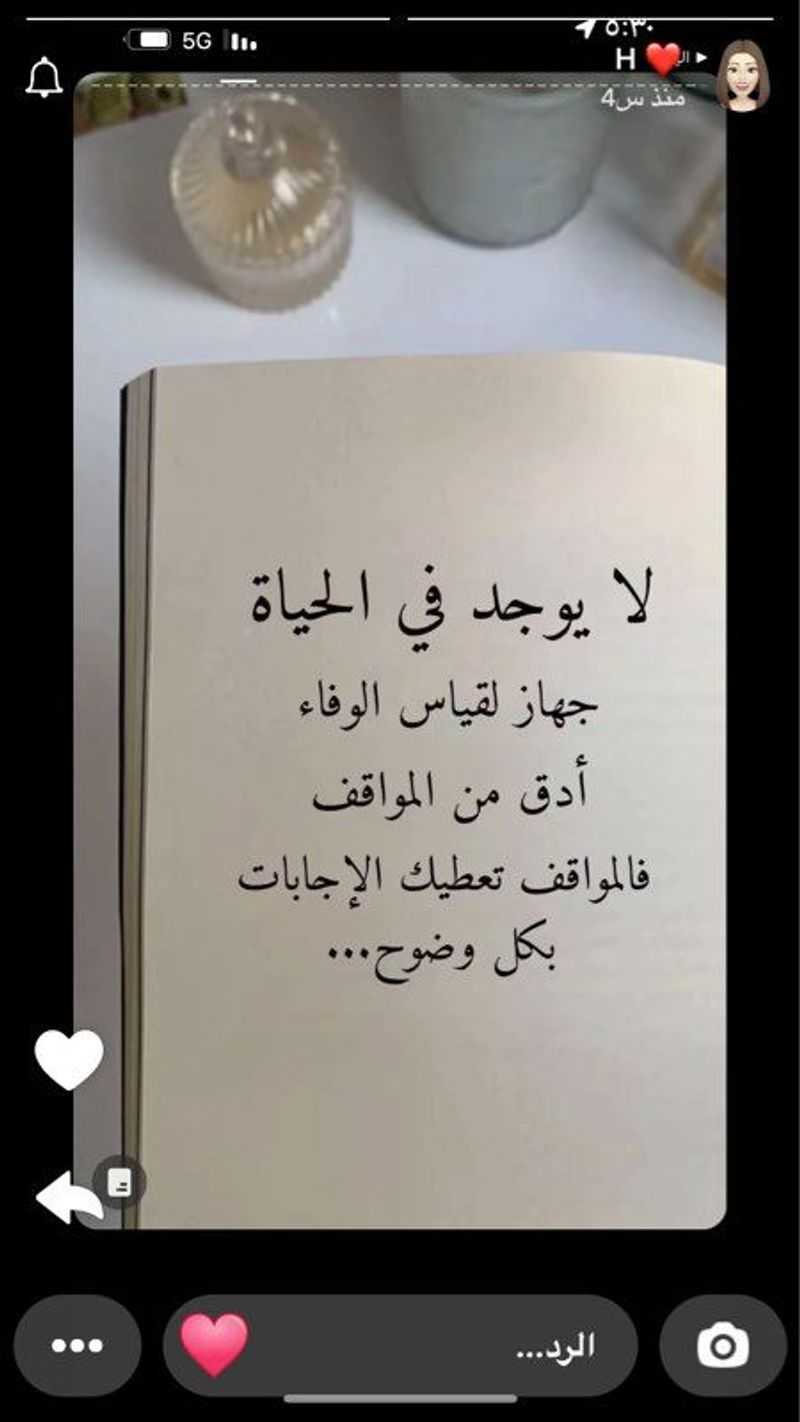 5G
٥:٣٠
H ❤️
منذ س4
لا يوجد في الحياة
جهاز لقياس الوفاء
أدق من المواقف
فالمواقف تعطيك الإجابات
بكل وضوح...
الرد...